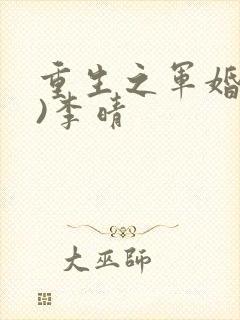 重生之军婚
)李晴
大巫师